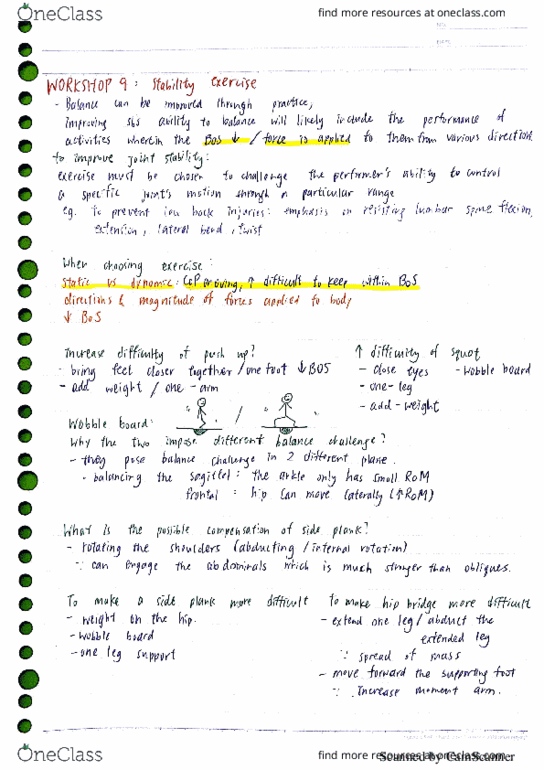 OneClass
find more resources at oneclass.com
WORKSHOP 9: Stability exercise
- Balance can be improved through practice,
Improving sbs ability to balance will likely include the performance of
activities wherein the BoS ↓ / force is applied to them from various directions
to improve joint stability:
exercise must be chosen to challenge the performer's ability to control
a specific joint's motion through a particular range
eg. To prevent low back injuries: emphasis on resisting lumbar spine flexion,
extension, lateral bend, twist
When choosing exercise:
Static vs dynamic: CoP moving, ↑ difficult to keep within BoS
directions & magnitude of forces applied to body
↓ BoS
Increase difficulty of push up?
- bring feet closer together / one foot ↓ BOS
- add weight / one-arm
↑ difficulty of squat
- close eyes - wobble board
- one-leg
- add-weight
Wobble board: /
Why the two impose different balance challenge?
- they pose balance challenge in 2 different plane.
- balancing the sagittel: the ankle only has small RoM
frontal: hip can move laterally (↑RoM)
What is the possible compensation of side plank?
- rotating the shoulders (abducting / internal rotation)
∵ can engage the abdominals which is much stronger than obliques.
To make a side plank more difficult
- weight on the hip.
- wobble board
- one leg support
to make hip bridge more difficult
- extend one leg / abduct the
extended leg
∵ spread of mass
- move forward the supporting foot
∵ Increase moment arm.
OneClass
find more resources at oneclass.com
Scanned by CamScanner